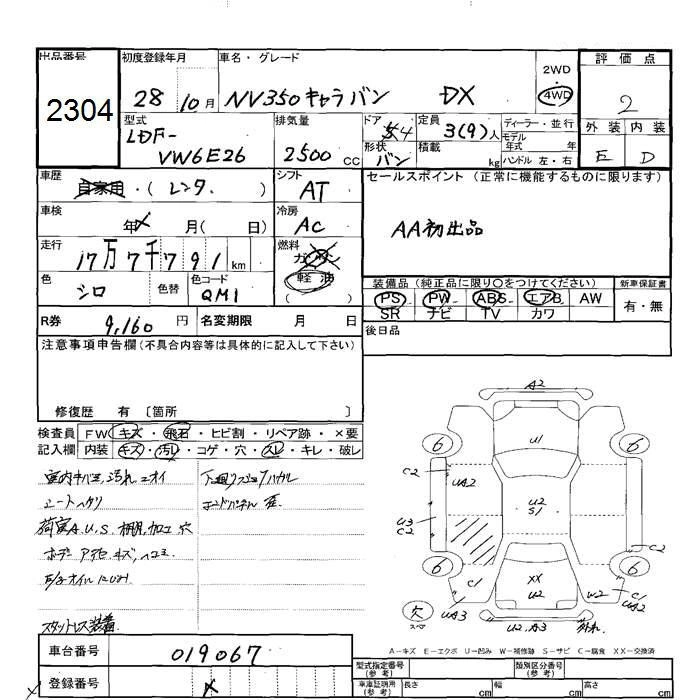 出品番号 初度登録年月 車名・グレード 2WD 評価点
2304 28 10月 NV350キャラバン DX ・ 4WD 2
型式 排気量 ドア 5 4 定員 ディーラー・並行 外装 内装
LDF- 形状 3(9)人 モデル
VW6E26 2500 CC バン 積載 kg 年式 年 E D
ハンドル 左・右
車歴 シフト セールスポイント (正常に機能するものに限ります)
自家用・( レンタ. ) AT
車検 冷房 AA初出品
年 X 月( 日) AC
走行 燃料
17万7千791 km ガソリン
色 色替 色コード 軽油 装備品(純正品に限り○をつけてください) 新車保証書
シロ QM1 ( ) PS PW ABS エアB AW 有・無
SR ナビ TV カワ
R券 9,160 円 名変期限 月 日 後日品
注意事項申告欄(不具合内容等は具体的に記入して下さい)
修復歴 有 〔箇所 〕
検査員 FW キズ・飛石・ヒビ割・リペア跡・×要
記入欄 内装 キズ・汚れ・コゲ・穴・スレ・キレ・破レ
室内キバミ汚れニオイ 下廻りサビフハイ
シートヘタリ エンドパネル歪
荷室A.U.S.棚、加工穴
ボデーアセ、キズ、ヘコミ
スタットレス装着
車台番号 019067
登録番号 X
A2
6 U1 6
C2 UA2
U2
S1
U3
C2 C2
6 C1 XX 6
U2 W2 C1
UA2
欠 UA3 U2.A3 外れ
スペア
A－キズ E－エクボ U－凹み W－補修跡 S－サビ C－腐食 XX－交換済
型式指定番号 類別区分番号
(参考) (参考)
車庫証明用 長さ 幅 高さ
(参考) cm cm cm